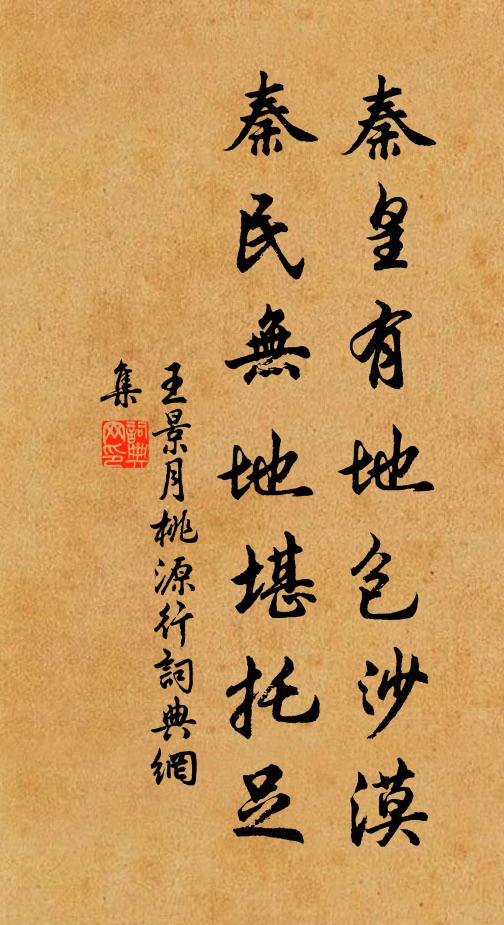 秦皇有地包沙漠
秦民無地堪托足
王景月桃源行詞典網
集
詞典網印